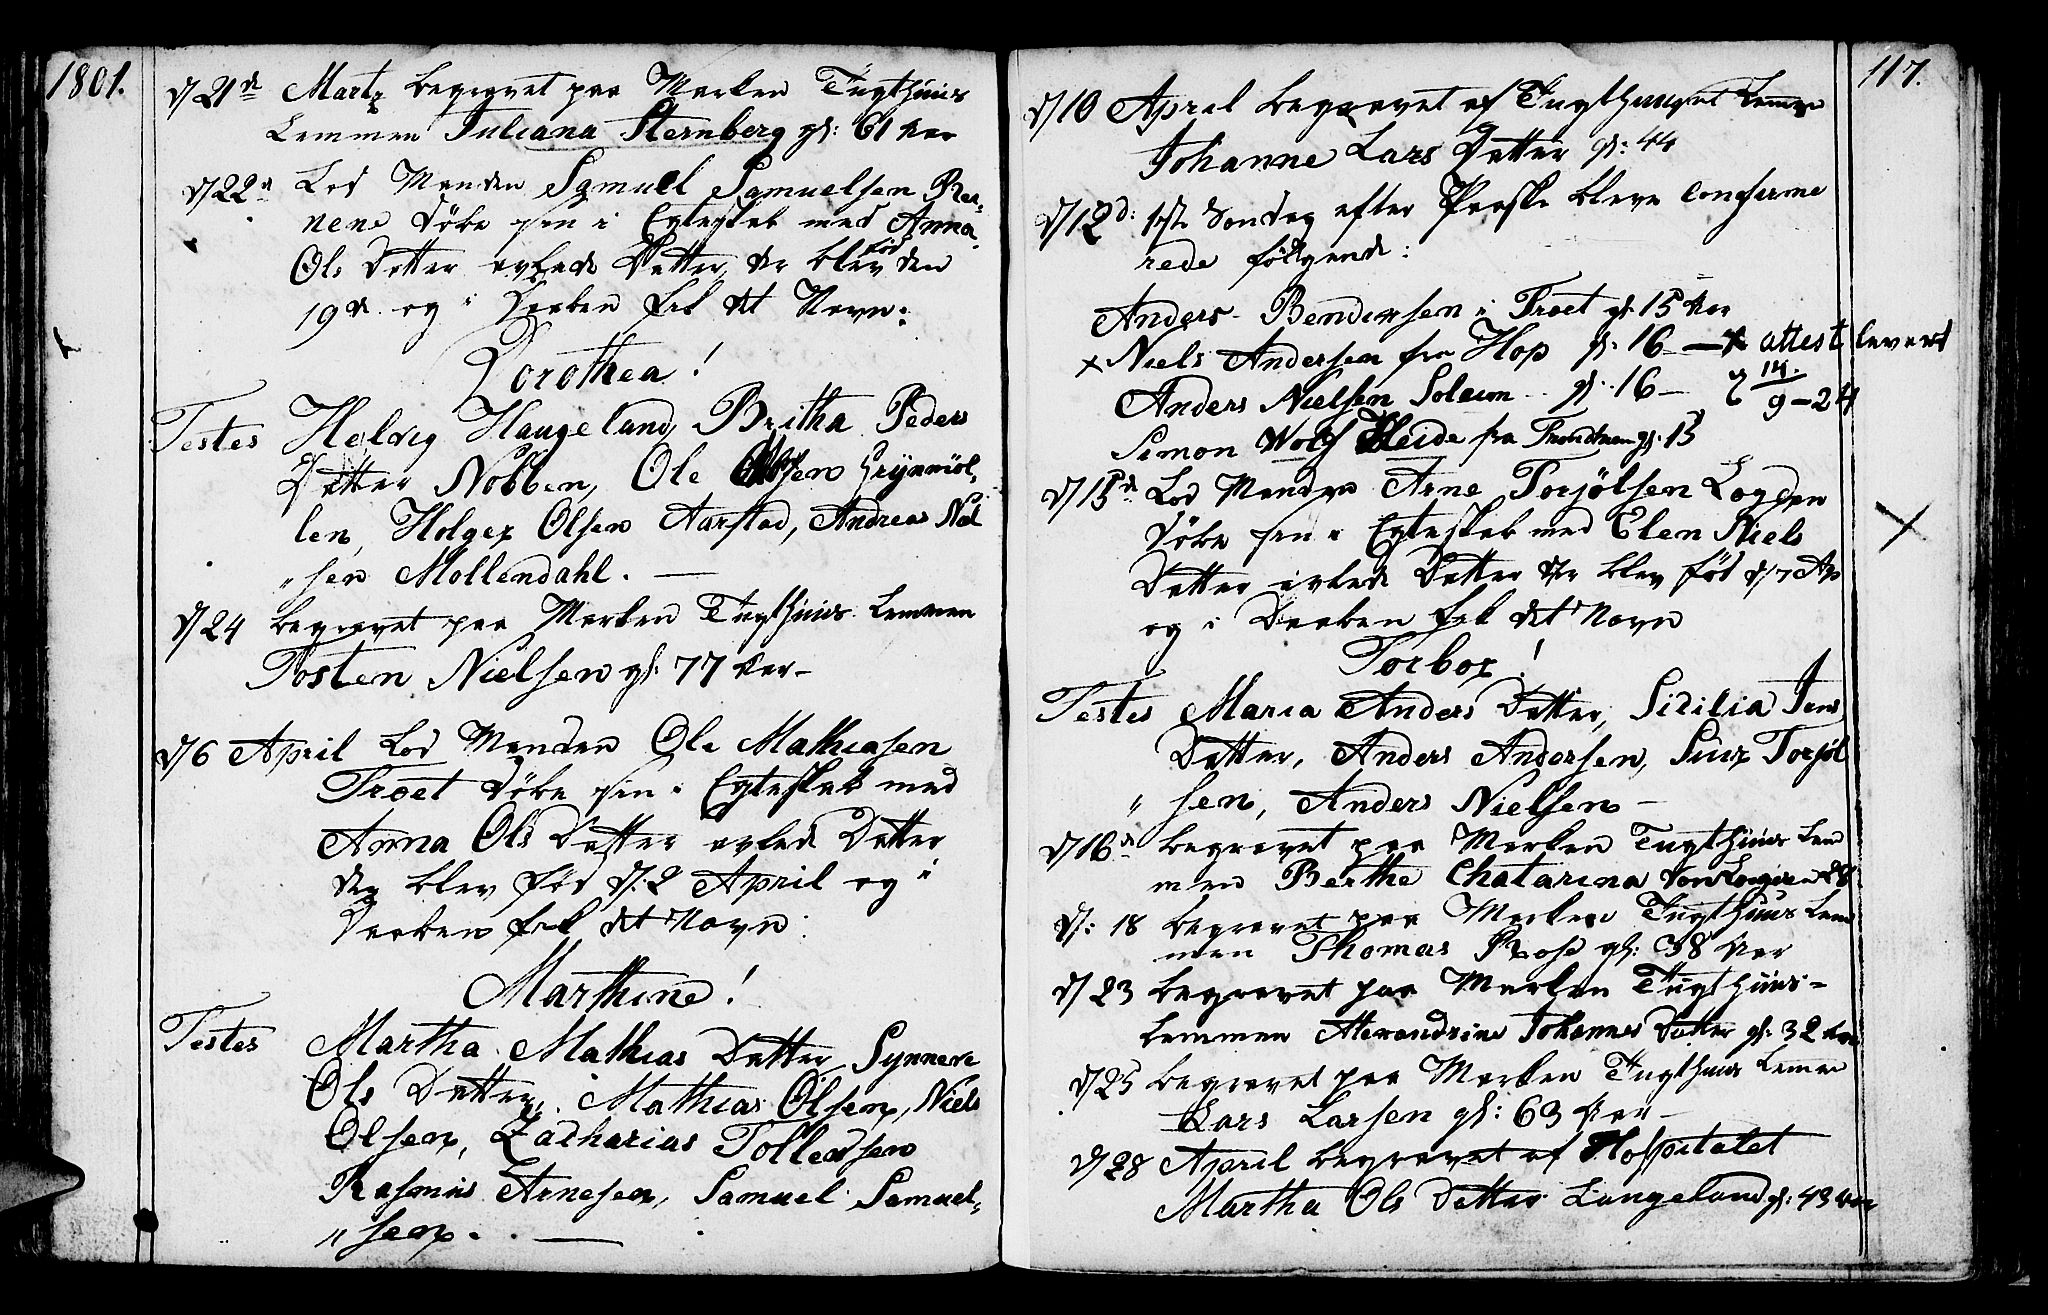 1801.
d/21de Martz begravet paa Marken Tugthuus
Lemmen Juliana Sternberg gl: 61 Aar
d/22d Lod Manden Samuel Samuelsen
nene Döbe sin i Egteskab med Anna
Ols Datter avlede Datter, der blev föd den
19de og i Daaben fik det Navn:
Dorothea!
Testes Helvig Haugeland, Britha Peders
Datter Nobben, Ole Olsen Grÿnmöl-
len, Holger Olsen Aarstad, Andreas Niel
"sen Mollendahl. —
d/24 begravet paa Marken Tugthuus Lemmen
Tosten Nielsen gl: 77 Aar —
d/6 April Lod Manden Ole Mathiasen
Troet Döbe sin i Egteskab med
Anna Ols Datter avlede Datter
der blev föd d: 2 April og i
Daaben fik det Navn:
Marthine!
Testes Martha Mathias Datter, Synneve
Ols Datter, Mathias Olsen, Niels
Olsen, Zacharias Tollevsen
Rasmus Arnesen, Samuel Samuel-
"sen. —
117.
d/10 April begravet af Tugthuuset Lemme
Johanne Lars Datter gl: 44
d/12d: 1ste Søndag efter Paaske bleve confirme
rede fölgende:
Anders Bendixsen i Troet gl: 15 Aar
x Niels Andersen fra Hop gl: 16 — x attest levert
Anders Nielsen Soleim gl: 16 — 14/9 – 24
Simon Wolf Heide fra Trondhiem gl: 15
d/15d Lod Manden Arne Torjölsen Logden
Döbe sin i Egteskab med Elen Niels
Datter avlede Datter der blev föd d/7 Ap
og i Daaben fik det Navn
Torbor!
Testes Maria Anders Datter, Sicilia Jens
Datter, Anders Andersen, Siur Torjöl
" sen, Anders Nielsen —
d/16d begravet paa Marken Tugthuus Lem
men Berthe Chatarina 28
d/: 18 begravet paa Marken Tugthuus Lem
men Thomas Rose gl: 38 Aar
d/23 begravet paa Marken Tugthuus-
Lemmen Alexandrine Johannes Datter gl: 32 Aar
d/25 begravet paa Marken Tugthuus Lemme
Lars Larsen gl: 63 Aar —
d/28 April begravet af Hospitalet
Martha Ols Datter Langeland gl: 43 Aar